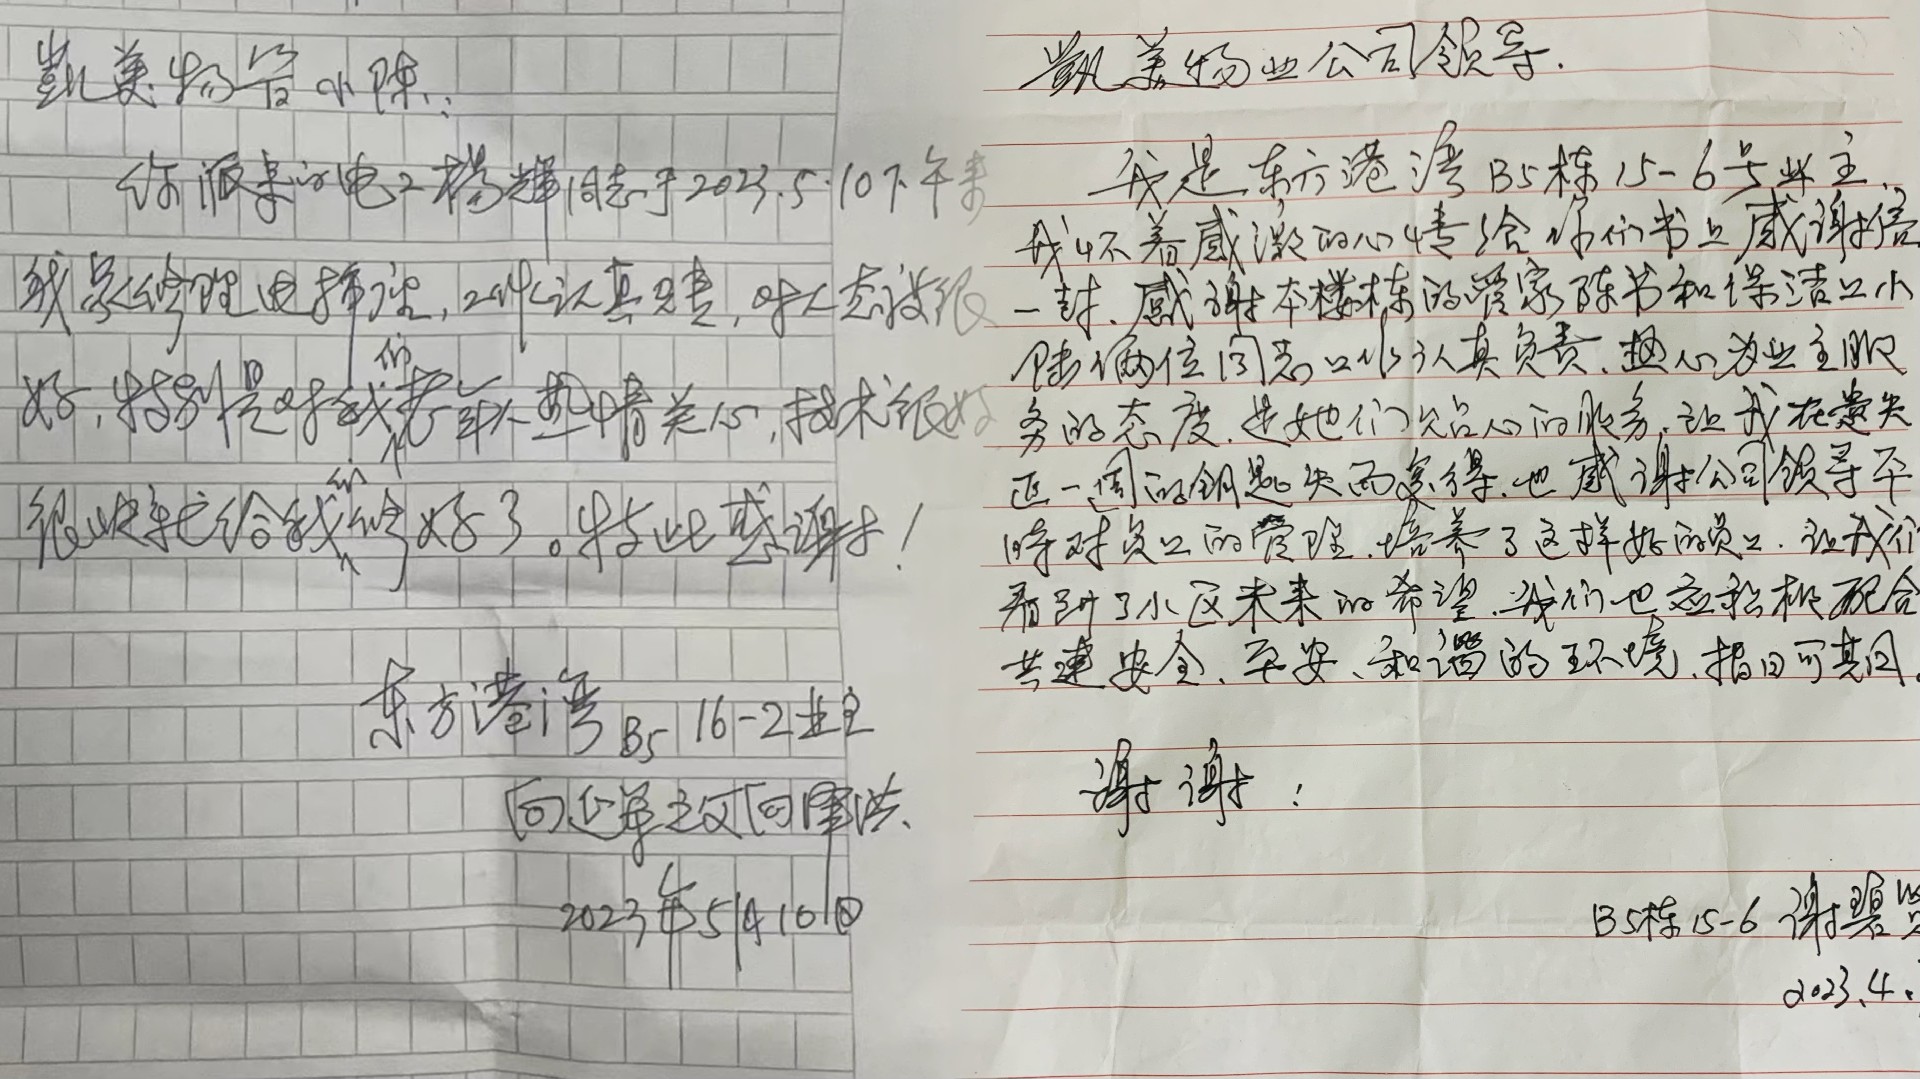 凱美物管小陈:
你派来的电工杨辉同志于2023.5.10下午来
我家修理电插座,工作认真负责,对人态度很
好,特别是对我们老年人热情关心,技术很好
很快就给我们修好了。特此感谢!
东方港湾B5 16-2业主
2023年5月10日
凱美物业公司领导.
我是东方港湾B5栋15-6号业主.
我怀着感激的心情给你们书上感谢信
一封、感谢本楼栋的管家陈书和保洁工小
陆俩位同志工作认真负责、热心为业主服
务的态度.是她们贴心的服务,让我在遗失
近一周的钥匙失而复得.也感谢公司领导平
时对员工的管理.培养了这样好的员工.让我们
看到了小区未来的希望.我们也应积极配合
共建安全、平安、和谐的环境、指日可期。
谢谢!
B5栋15-6 谢碧
2023.4.